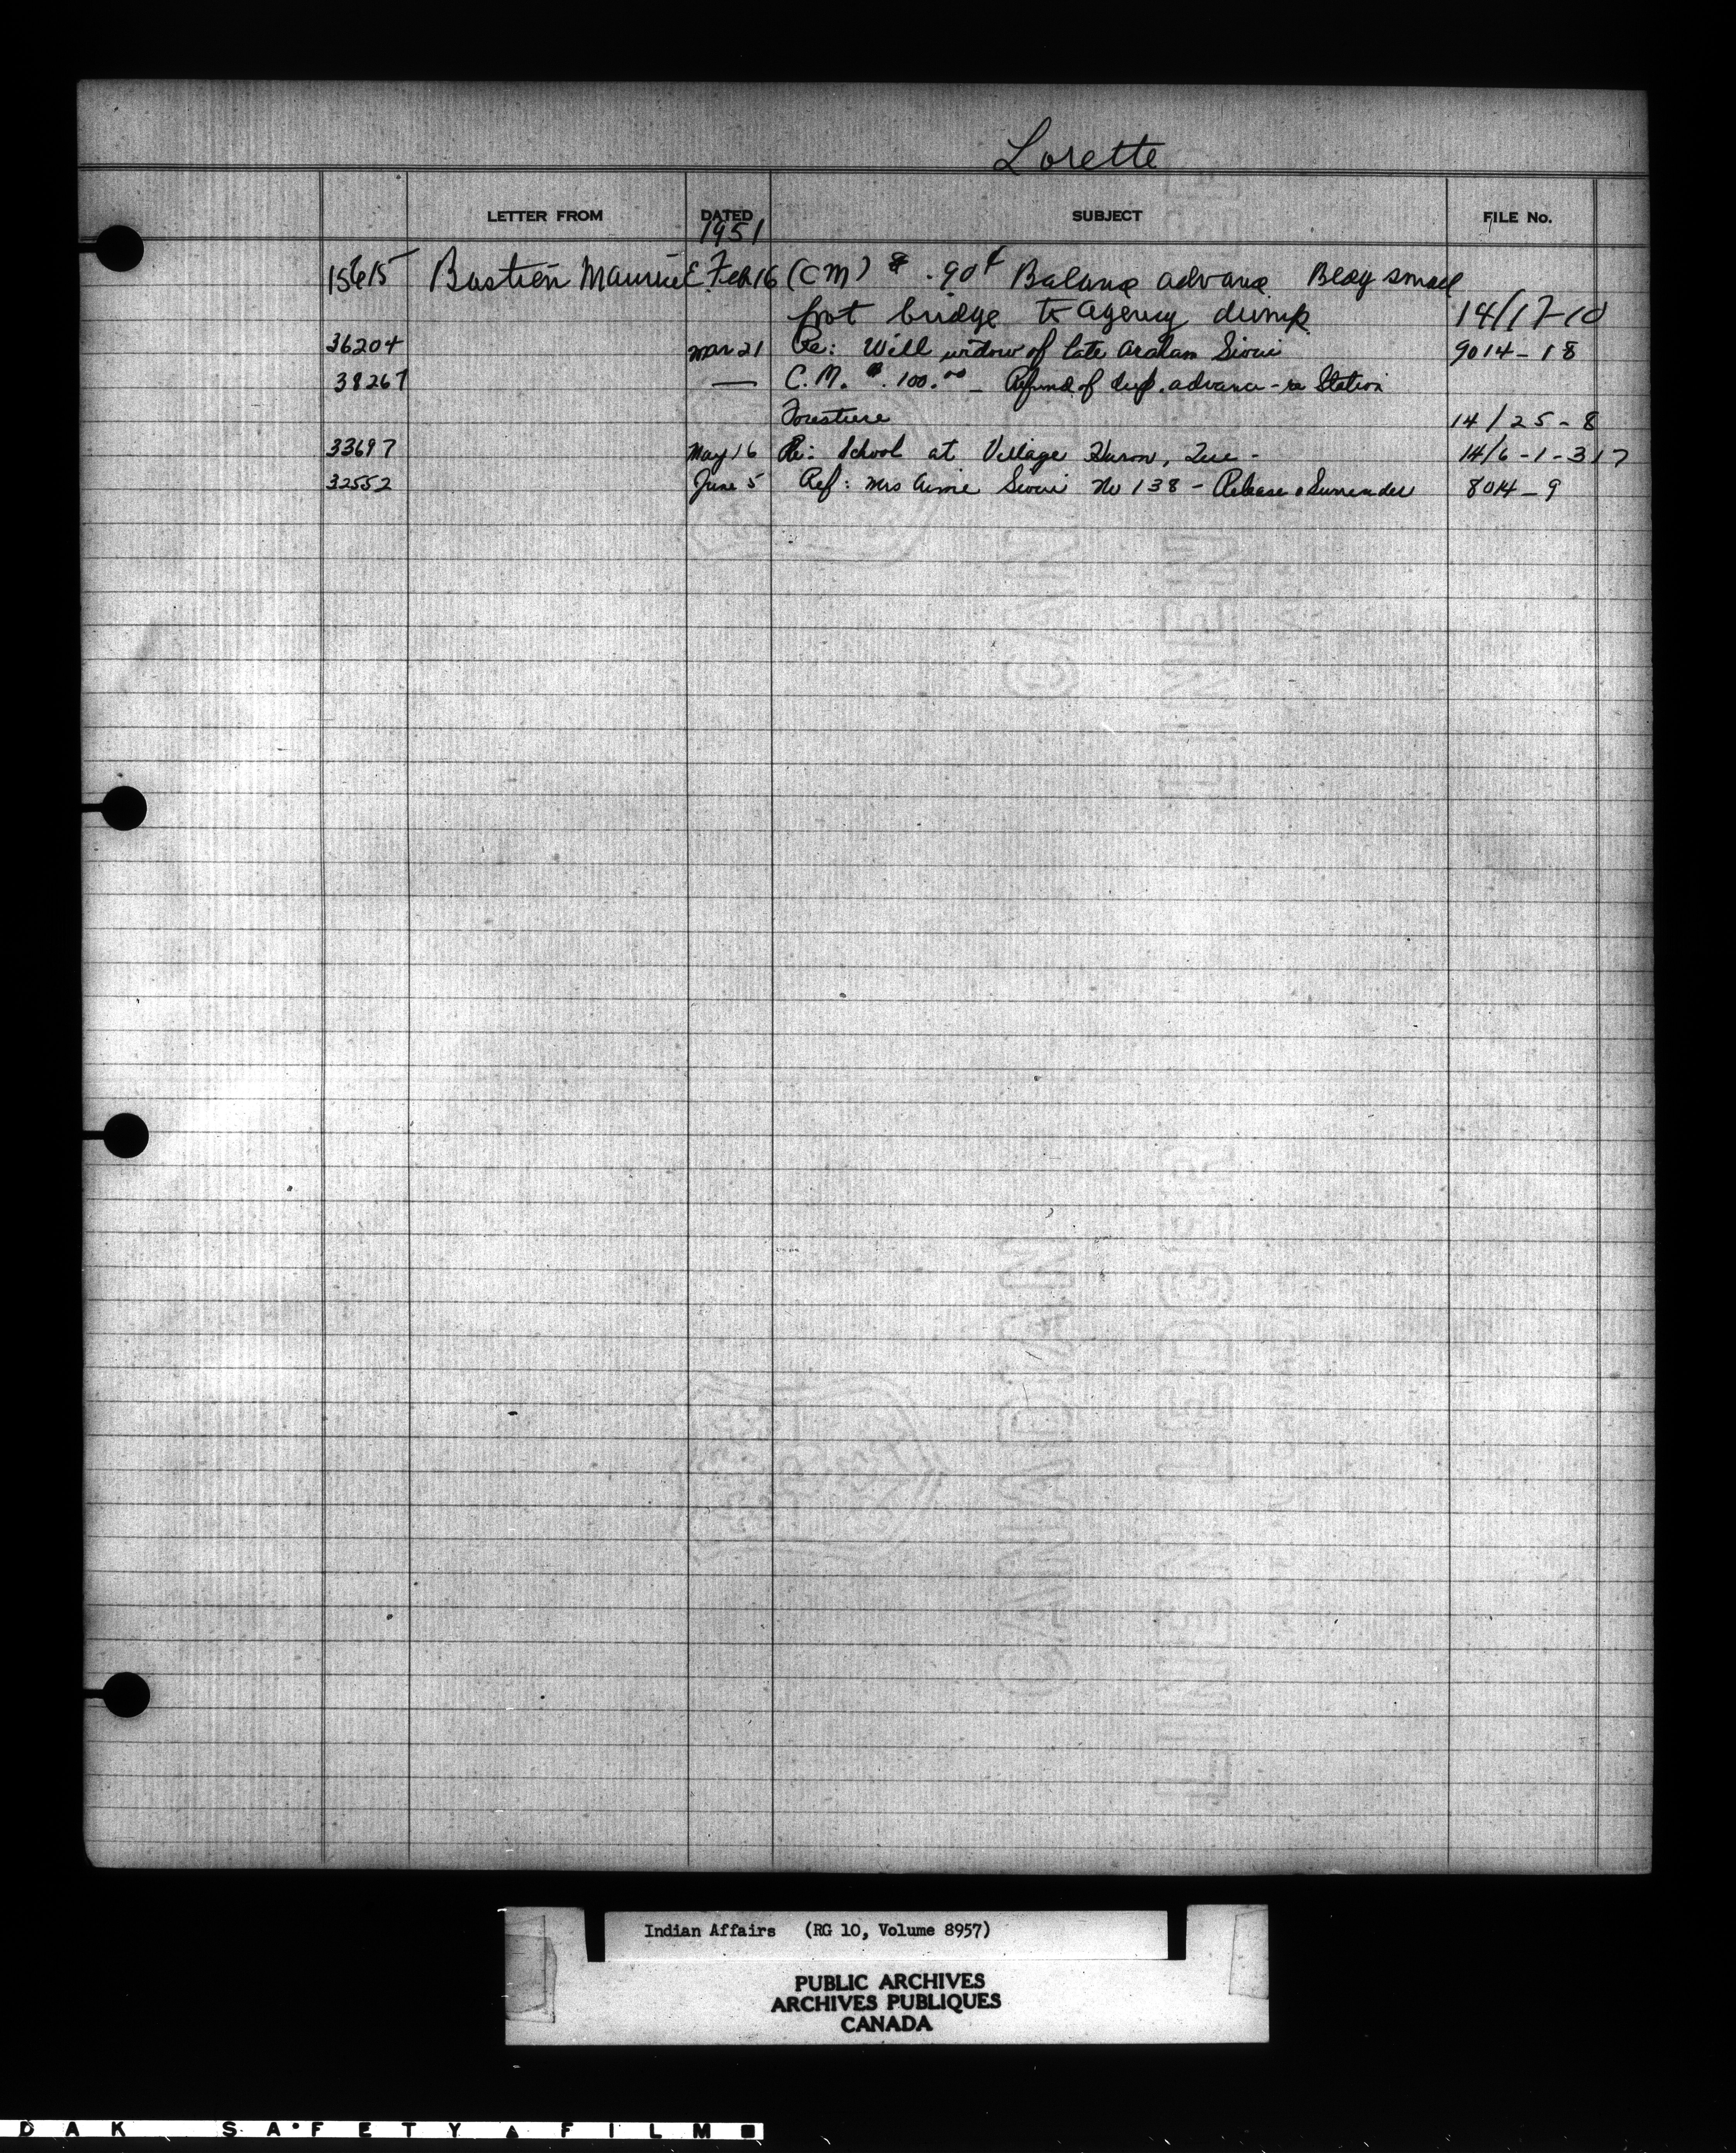 Lorette
LETTER FROM DATED SUBJECT FILE No.
1951
15615 Bastien Maurice E. Feb 16 (CM) $ .90¢ Balance advance Bldg small
foot bridge to agency dump 14/17-10
36204 Mar 21 Re: Will widow of late Sioui 9014-18
38267 — C.M. $.100.00 - Refund of dup. advance - re Station
Forestiere 14/25-8
33697 May 16 Re: School at Village Huron, Que - 14/6-1-317
32552 June 5 Ref: Mrs Aimé Sioui No 138 - Release & Surrender 8014-9
FINE LINEN LEDGER
CANADIAN
Indian Affairs (RG 10, Volume 8957)
PUBLIC ARCHIVES
ARCHIVES PUBLIQUES
CANADA
DAK SAFETY FILM